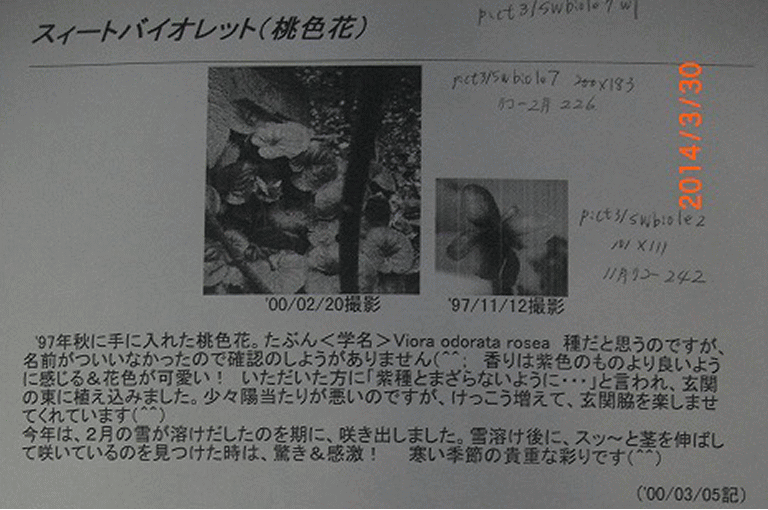 スィートバイオレット(桃色花)
pict3/swbiole7
200×183
2月 226
2014/3/30
pict3/swbiole2
111
11月 242
'00/02/20撮影
'97/11/12撮影
'97年秋に手に入れた桃色花。たぶん<学名>Viora odorata rosea 種だと思うのですが、
名前がついいなかったので確認のしようがありません(^^; 香りは紫色のものより良いよう
に感じる&花色が可愛い! いただいた方に「紫種とまざらないように・・・」と言われ、玄関
の東に植え込みました。少々陽当たりが悪いのですが、けっこう増えて、玄関脇を楽しませ
てくれています(^^)
今年は、2月の雪が溶けだしたのを期に、咲き出しました。雪溶け後に、スッ～と茎を伸ばし
て咲いているのを見つけた時は、驚き&感激! 寒い季節の貴重な彩りです(^^)
('00/03/05記)